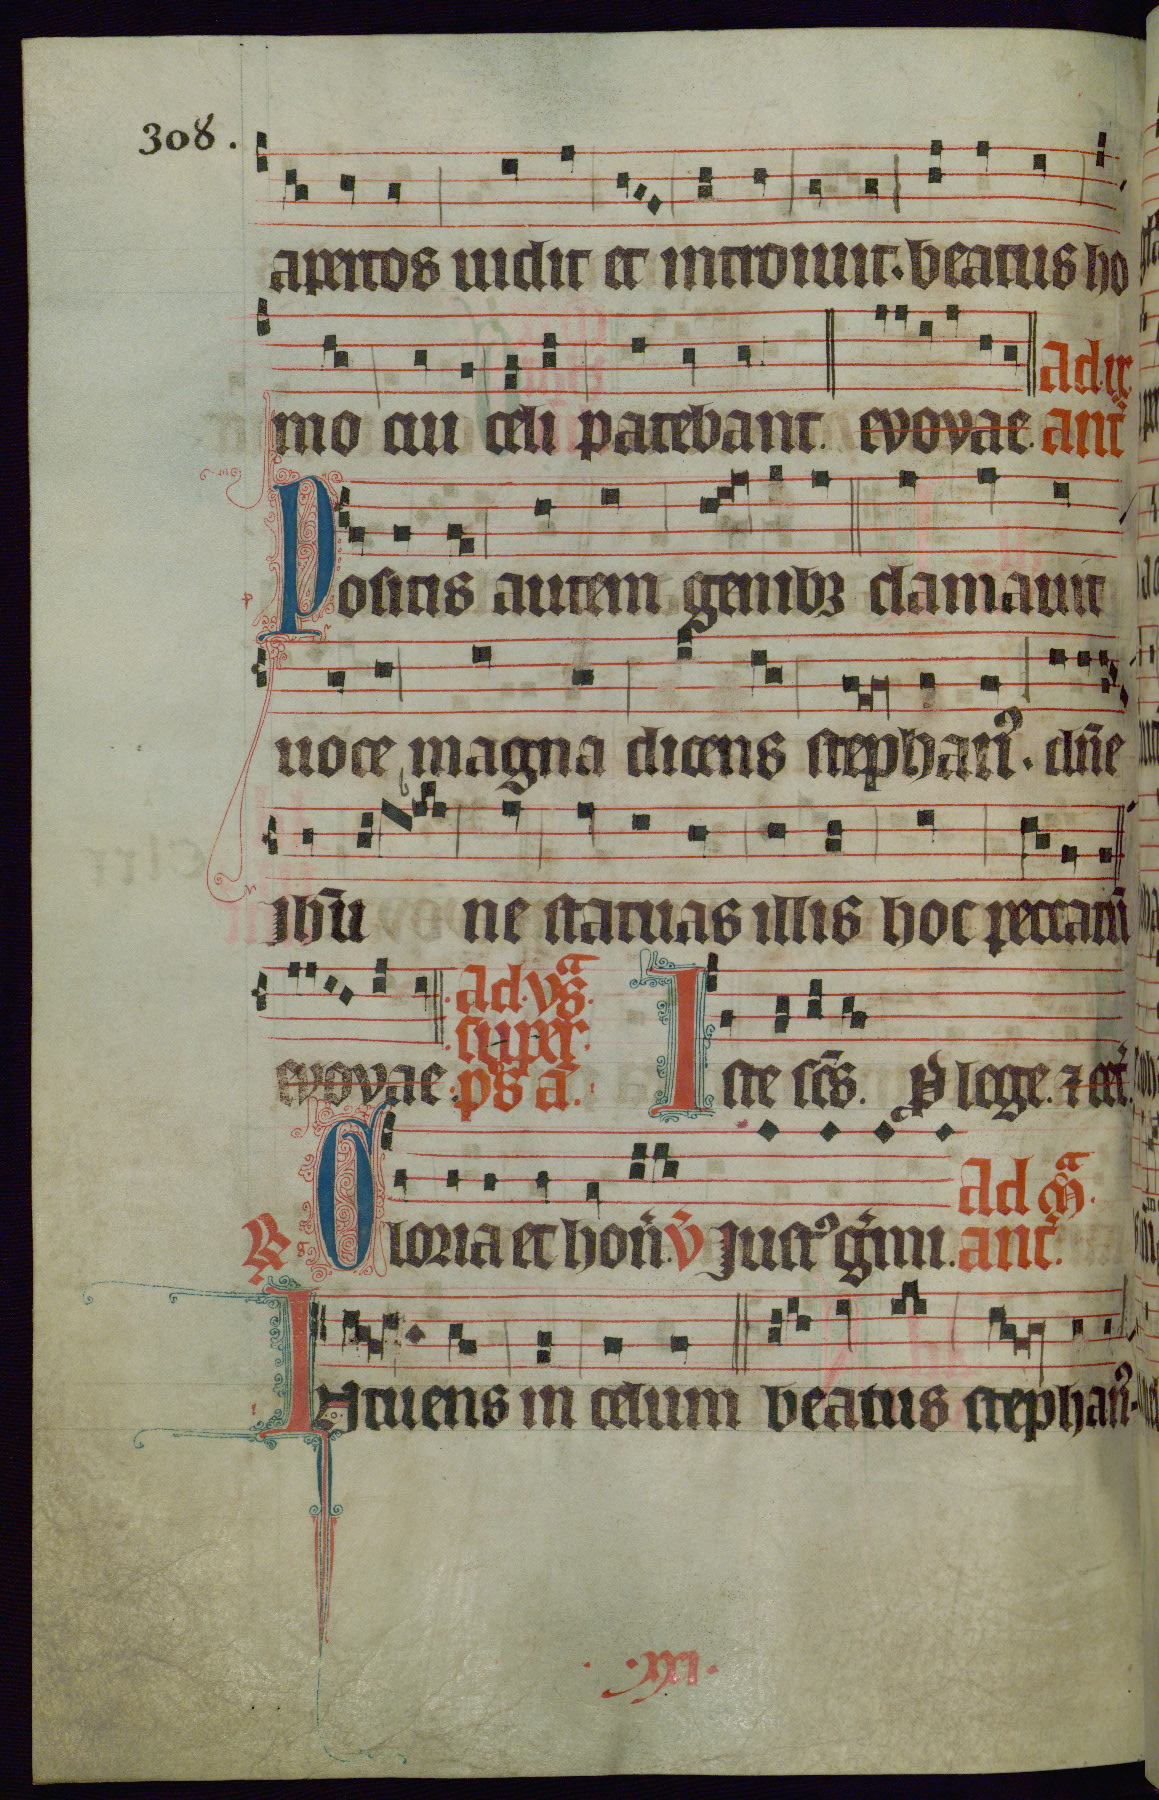 308.
apertos uidit et introiuit. beatus ho
mo cui celi patebant. evovae. ad.ix. ant̄
Positis autem genibꝫ clamauit
uoce magna dicens stephanꝰ. dn̄e
ihū ne statuas illis hoc peccatū
evovae. ad. vs̄ super ps̄ a. Iste sc̄s. p̄ lege. ⁊ cet̄.
℟ Gloria et hon̄. v̄ Iustꝰ g̃mi. ad m̄ ant̄.
Intuens in celum beatus stephanꝰ
.xxi.